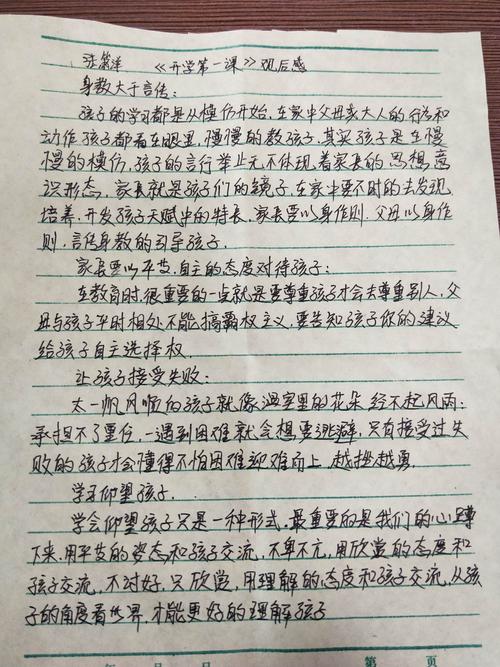 《开学第一课》观后感
身教大于言传:
孩子的学习都是从模仿开始,在家中父母亲大人的行为和
动作孩子都看在眼里,慢慢的教孩子,其实孩子是在慢
慢的模仿,孩子的言行举止无不体现着家长的思想,意
识形态,家长就是孩子们的镜子,在家中要不时的去发现
培养,开发孩子天赋中的特长,家长要以身作则.父母以身作
则,言传身教的引导孩子.
家长要以平等.自主的态度对待孩子:
在教育时,很重要的一点就是要尊重孩子才会去尊重别人,父
母与孩子平时相处不能搞霸权主义,要告知孩子你的建议
给孩子自主选择权.
让孩子接受失败:
太一帆风顺的孩子就像温室里的花朵经不起风雨:
承担不了重任,一遇到困难就会想要逃避,只有接受过失
败的孩子才会懂得不怕困难迎难而上.越挫越勇.
学习仰望孩子.
学会仰望孩子只是一种形式.最重要的是我们的心蹲
下来,用平等的姿态和孩子交流,不卑不亢,用欣赏的态度和
孩子交流,不讨好,只欣赏,用理解的态度和孩子交流,从孩
子的角度看世界,才能更好的理解孩子
年 月 日 第 页